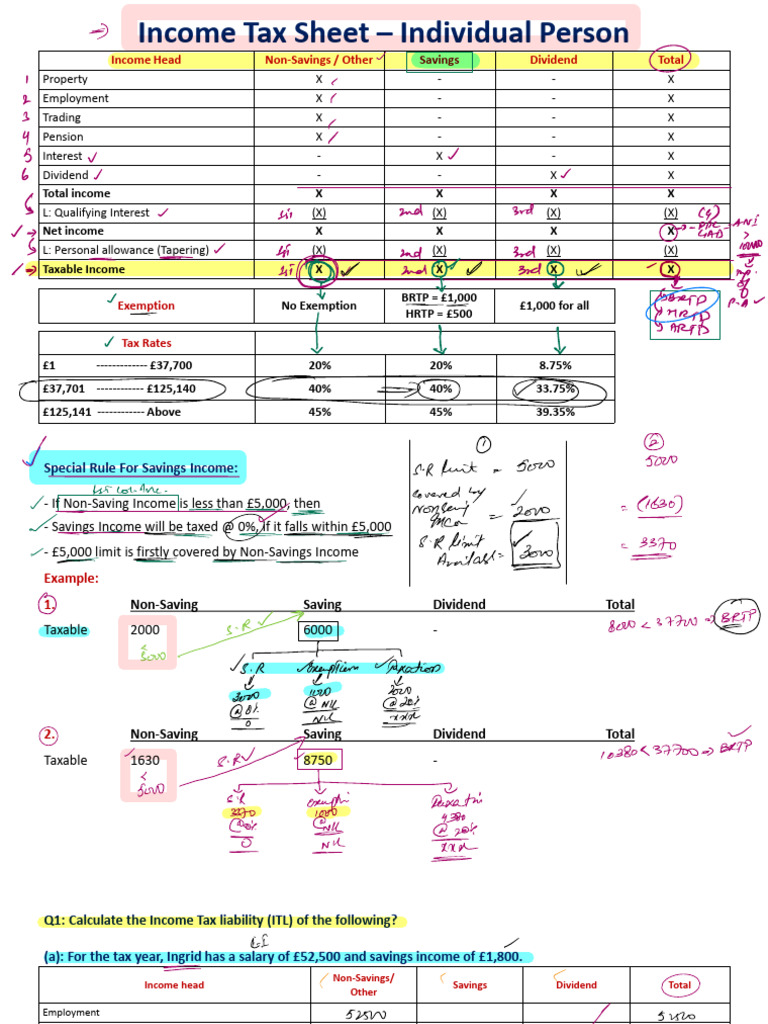 Income Tax Sheet – Individual Person
Income Head Non-Savings / Other Savings Dividend Total
1 Property X - - X
2 Employment X - - X
3 Trading X - - X
4 Pension X - - X
5 Interest - X - X
6 Dividend - - X X
Total income X X X X
L: Qualifying Interest 1st (X) 2nd (X) 3rd (X) (X)
Net income X X X X
L: Personal allowance (Tapering) 1st (X) 2nd (X) 3rd (X) (X)
Taxable Income 1st X 2nd X 3rd X X
Exemption No Exemption BRTP = £1,000 £1,000 for all
HRTP = £500
BRTP
HRTP
ARTP
Tax Rates
£1 ------------- £37,700 20% 20% 8.75%
£37,701 ------------- £125,140 40% 40% 33.75%
£125,141 ------------ Above 45% 45% 39.35%
Special Rule For Savings Income:
- If Non-Saving Income is less than £5,000, then
- Savings Income will be taxed @ 0%, if it falls within £5,000
- £5,000 limit is firstly covered by Non-Savings Income
1
S.R limit = 5000
covered by
= 2000
S.R limit
= 3000
2
5000
= (1630)
= 3370
Example:
1. Non-Saving Saving Dividend Total
Taxable 2000 6000 - 8000 < 37700 => BRTP
< 5000
S.R
S.R Exemption Taxation
3000 1000 2000
@ 0% @ Nil @ 20%
0 Nil xxx
2. Non-Saving Saving Dividend Total
Taxable 1630 8750 - 10380 < 37700 => BRTP
< 5000
S.R
S.R
3370 1000 4380
@ 0% @ Nil @ 20%
0 Nil xxx
Q1: Calculate the Income Tax liability (ITL) of the following?
(a): For the tax year, Ingrid has a salary of £52,500 and savings income of £1,800.
Income head Non-Savings/ Other Savings Dividend Total
Employment 52500 52500